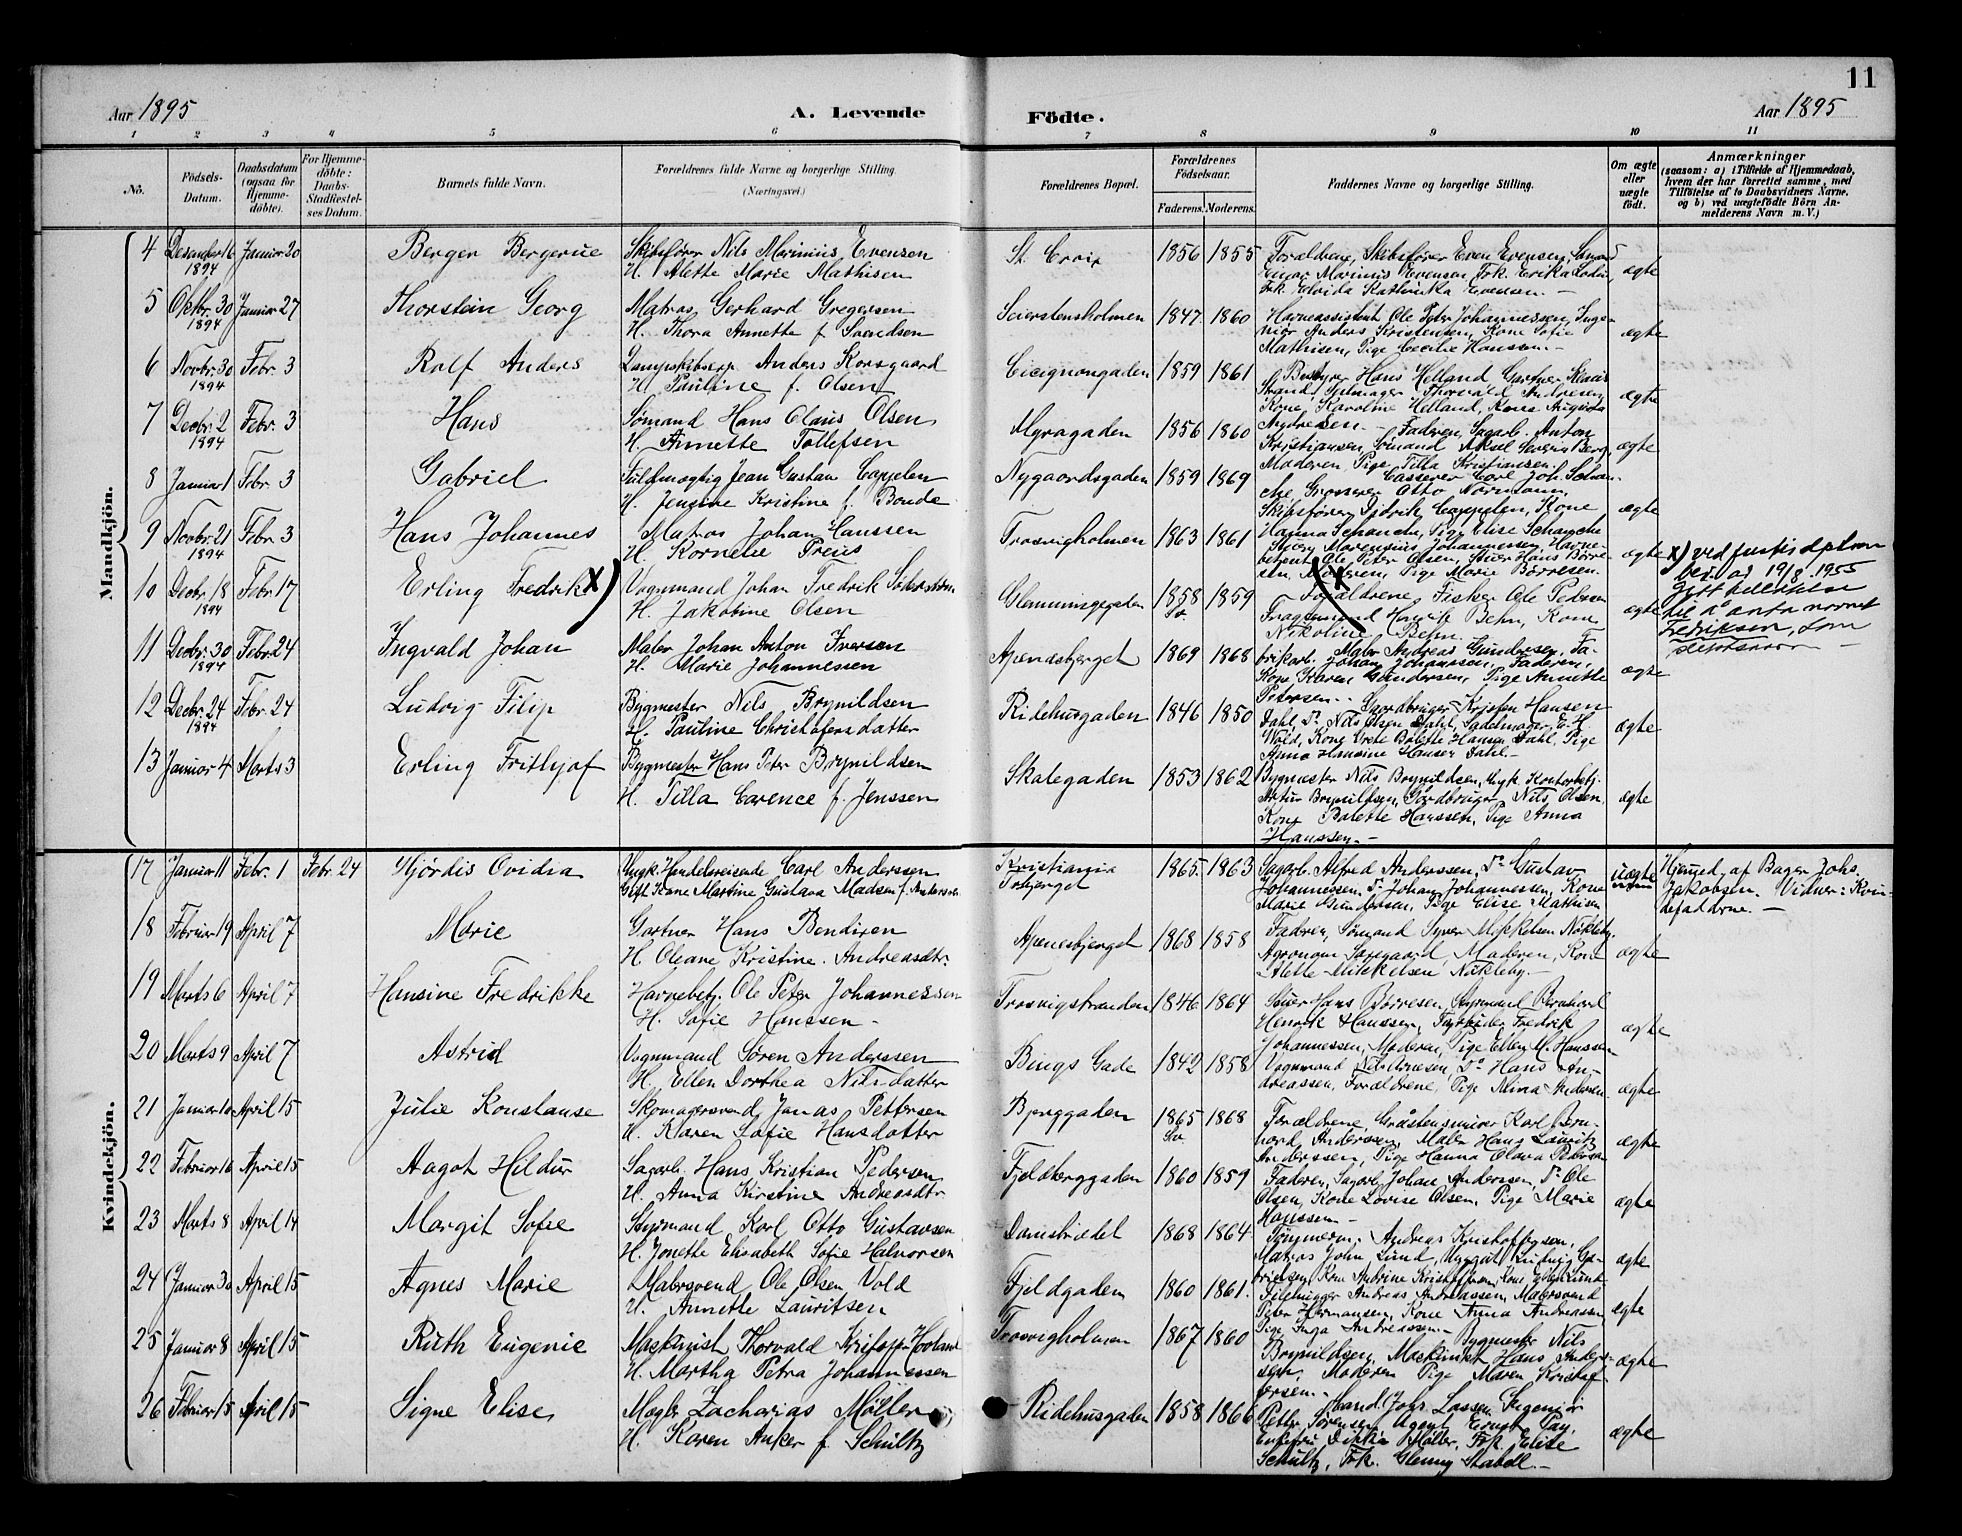 11
Aar 1895
A. Levende Födte.
Aar 1895
1 2 3 4 5 6 7 8 9 10 11
No.
Födsels-Datum.
Daabsdatum (ogsaa for Hjemme-döbte).
For Hjemme-döbte: Daabs-Stadfestel-ses Datum.
Barnets fulde Navn.
Forældrenes fulde Navne og borgerlige Stilling. (Næringsvei.)
Forældrenes Bopæl.
Forældrenes Födselsaar.
Faderens. Moderens.
Faddernes Navne og borgerlige Stilling.
Om ægte eller uægte födt.
Anmærkninger
(saasom: a) i Tilfælde af Hjemmedaab, hvem der har forrettet samme, med Tilföielse af to Daabsvidners Navne. og b) ved uægtefödte Börn An-melderens Navn m. V.)
Mandkjön.
4 Desember 16 1894 Januar 20 Bergen Bergerue Skibsfører Nils Marinius Evensen
H. Alette Marie Mathisen
St. Croix 1856 1855 Forældrene, Skibsfører Even Evensen, Sømand
Einar Marinius Evensen Frk. Erika
Frk. Elvida Kathinka Evensen. —
ægte
5 Oktbr. 30 1894 Januar 27 Thorstein Georg Matros Gerhard Gregersen
H. Thora Annette f. Svendsen
Seierstensholmen 1847 1860 Havneassistent Ole Peter Johannessen, Inge-
niør Anders Kristensen, Kone Sofie
Mathisen, Pige Cecilie Hansen. —
ægte
6 Novbr. 30 1894 Febr. 3 Rolf Anders Anders Korsgaard
H. Pauline f. Olsen
Cicignongaden 1859 1861 Bestyrer Hans Helland, Gartner
Strand, Thorvald Andresen,
Kone Karoline Helland, Kone Augusta
Andresen. —
ægte
7 Decbr. 2 1894 Febr. 3 Hans Sømand Hans Olaus Olsen
H. Annette Tollefsen
Myragaden 1856 1860 Faderen, Sagarb. Anton
Kristiansen, Sømand Aksel Severin Berg
Moderen, Pige Tilla Kristiansen.
ægte
8 Januar 1 Febr. 3 Gabriel Fuldmægtig Jean Gustav Cappelen
H. Jensine Kristine f. Bonde
Nygaardsgaden 1859 1869 Casserer Carl Joh. Schan-
che, Grosserer Otto Normann,
Skibsfører Didrik Cappelen, Kone
Hanna Schanche, Pige Elise Schanche
ægte
9 Novbr. 21 1894 Febr. 3 Hans Johannes Matros Johan Hanssen
H. Kornelie Preus
Trosvigholmen 1863 1861 Marensius Johannessen, Havne-
betjent Ole Peter Olsen, Stuer Hans Børre-
sen, Moderen, Pige Marie Børresen.
ægte
10 Decbr. 18 1894 Febr. 17 Erling Fredrik X) Vognmand Johan Fredrik
H. Jakobine Olsen
Glemmingegaden 1858 Sv. 1859 Forældrene, Fisker Ole Pedersen
Henrik Behn, Kone
Nikoline Behn.
ægte
X) ved justisdptem.
bev. av 19/8. 1955
gitt tillatelse
til å anta navnet
Fredriksen, som
slektsnavn —
11 Decbr. 30 1894 Febr. 24 Ingvald Johan Maler Johan Anton Iversen
H. Marie Johannessen
Apenæsbjerget 1869 1868 Maler Andreas Gundersen, Fa-
brikarb. Johan Johannessen, Faderen,
Kone Karen Gundersen, Pige Annette
Petersen. —
ægte
12 Decbr. 24 1894 Febr. 24 Ludvig Filip Bygmester Nils Brynildsen
H. Pauline Christofersdatter
Ridehusgaden 1846 1850 Gaardbruger Kristen Hansen
Dahl, Do. Nils Olsen Dahl, Sadelmager E. H.
Wold, Kone Grete Bolette Hansen Dahl, Pige
Anna Hansine Hansen Dahl. —
ægte
13 Januar 4 Marts 3 Erling Frithjof Bygmester Hans Peter Brynildsen
H. Tilla Carence f. Jenssen
Skolegaden 1853 1862 Bygmester Nils Brynildsen, Ungk. Kontorbetj.
Artur Brynildsen, Gårdbruger Nils Olsen,
Kone Bolette Hanssen, Pige Anna
Hanssen. —
ægte
Kvindekjön.
17 Januar 11 Febr. 1 Febr. 24 Hjørdis Ovidia Ungk. Handelsreisende Carl Anderssen
Gift Kone Martine Gustava Madsen f. Anderssen
Kristiania
Tobjerget
1865 1863 Sagarb. Alfred Anderssen, Do. Gustav
Johannessen, Do. Johan Johannessen, Kone
Marie Gundersen, Pige Elise Mathisen
uægte
Hjemmed. af Bager Johs.
Jakobsen. Vidner: Kvin-
defadderne. —
18 Februar 19 April 7 Marie Gartner Hans Bendixen
H. Oleane Kristine Andreasdtr.
Apenæsbjerget 1868 1858 Faderen, Sømand Syver Mikkelsen Nökleby,
Agronom Seyegaard, Moderen, Kone
Alette Mikkelsen Nökleby. —
ægte
19 Marts 6 April 7 Hansine Fredrikke Havnebetj. Ole Peter Johannessen
H. Sofie Hanssen —
Trosvigstranden 1846 1864 Stuer Hans Børresen, Styrmand Bernhard
Henrik Hanssen, Fredrik
Johannessen, Moderen, Pige Ellen M. Hanssen
ægte
20 Marts 9 April 7 Astrid Vognmand Søren Anderssen
H. Ellen Dorthea Nilsdatter
Bings Gade 1842 1858 Vognmand Nils Arnesen, Do. Hans An-
dreassen, Forældrene, Pige Alma Andersen
ægte
21 Januar 10 April 15 Julie Konstanse Skomagersvend Jonas Pettersen
H. Karen Sofie Hansdatter
Bjerggaden 1865 Sv. 1868 Forældrene, Gråstensminør Karl Bern-
hard Anderssen, Maler Hans Lauritz
Anderssen, Pige Hanna Olava Pedersen
ægte
22 Februar 16 April 15 Aagot Hildur Sagarb. Hans Kristian Pedersen
H. Anna Kirstine Andreasdtr.
Fjeldberggaden 1860 1859 Faderen, Sagarb. Johan Anderssen, Do. Ole
Olsen, Kone Lovise Olsen, Pige Marie
Hanssen. —
ægte
23 Marts 8 April 14 Margit Sofie Styrmand Karl Otto Gustavsen
H. Jonette Elisabeth Sofie Halvorsen
Damstrædet 1868 1864 Tömmerm. Andreas Kristoffersen,
Matros John Lund, Ludvig Ga-
brielsen, Kone Andrine Kristoffersen, Kone Lund
ægte
24 Januar 30 April 15 Agnes Marie Malersvend Ole Olsen Vold
H. Annette Lauritsen
Fjeldgaden 1860 1861. Filehugger Andreas Andreassen, Malersvend
Peter Hermansen, Kone Anna Andreassen
Pige Inga Andreassen. —
ægte
25 Januar 8 April 15 Ruth Eugenie Maskinist Thorvald Kristoffer Hovland
H. Martha Petra Johannessen
Trosvigholmen 1867 1860 Bygmester Nils
Brynildsen, Maskinist Hans Anders-
sen, Moderen, Pige Maren Kristof-
fersen. —
ægte
26 Februar 15 April 15 Signe Elise Mægler Zacharias Møller
H. Karen Anker f. Schultz
Ridehusgaden 1858 1866 Hand. Johs. Lassen, Ingeniør
Petter Sørensen, Agent Ernst Pay,
Enkefru Dikka Møller, Frk. Elise
Schultz, Frk. Glenny Stabell. —
ægte